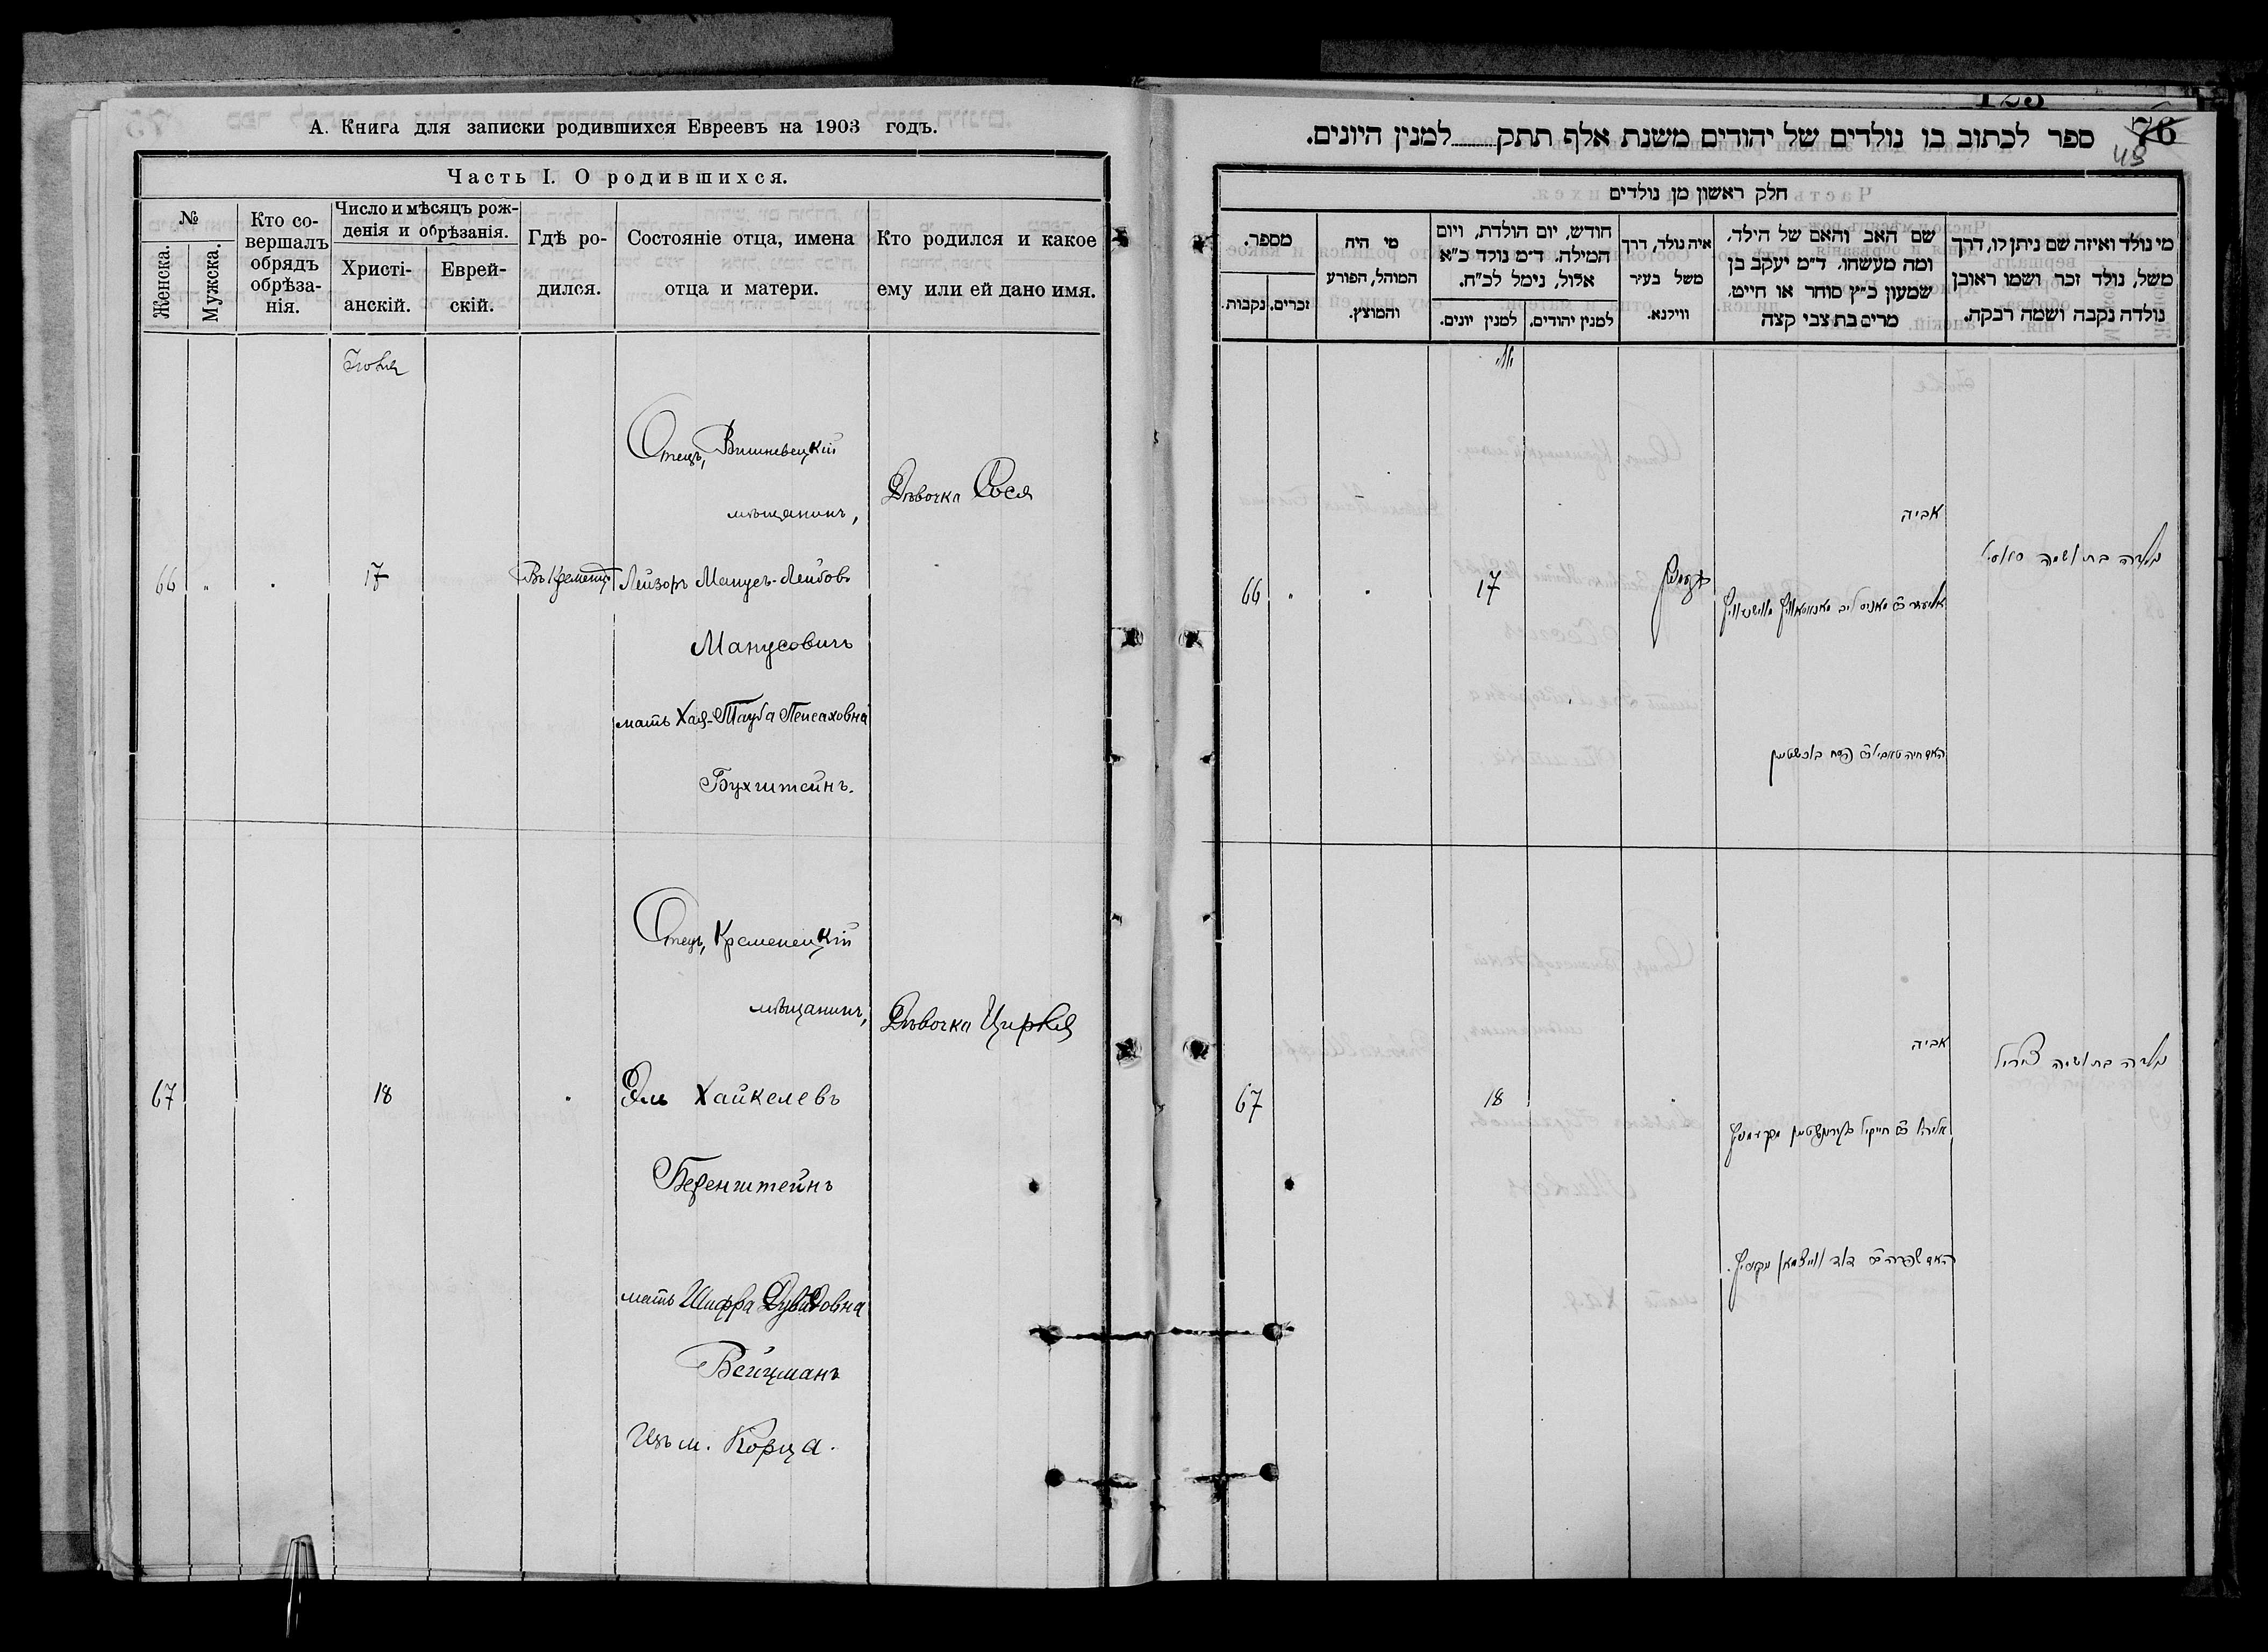 А. Книга для записки родившихся Евреевъ на 1903 годъ.
Часть I. О родившихся.
№
Женска.
Мужска.
Кто со-
вершалъ
обрядъ
обрѣза-
нія.
Число и мѣсяцъ рож-
денія и обрѣзанія.
Христі-
анскій.
Еврей-
скій.
Гдѣ ро-
дился.
Состояніе отца, имена
отца и матери.
Кто родился и какое
ему или ей дано имя.
Отецъ, Вишневецкій
мѣщанинъ,
Дѣвочка Сося
66 17 Въ Кременцѣ Лейзоръ Манусъ-Лейбовъ
Манусовичъ
мать Хая-Тауба Пейсаховна
Бухштейнъ.
Отецъ, Кременецкій
мѣщанинъ,
Дѣвочка Цирля
67 18 Эль Хайкелевъ
Беренштейнъ
мать Шифра Дувидовна
Вейцманъ
изъ м. Корца.
123
76
49
ספר לכתוב בו נולדים של יהודים משנת אלף תתק למנין היונים.
חלק ראשון מן נולדים
מי נולד ואיזה שם ניתן לו, דרך
משל, נולד זכר ושמו ראובן
נולדה נקבה ושמה רבקה.
שם האב והאם של הילד,
ומה מעשהו. ד״מ יעקב בן
שמעון כ״ץ סוחר או חייט,
מרים בת צבי קצה
איה נולד, דרך
משל בעיר
ווילנא.
חודש, יום הולדת, ויום
המילה. ד״מ נולד כ״א
אלול, נימל לכ״ח.
למנין יהודים.
למנין יונים.
מי היה
המוהל, הפורע
והמוצץ.
מספר.
זכרים.
נקבות.
אביה
66 17
אביה
נולדה בת ושמה צירל
67 18